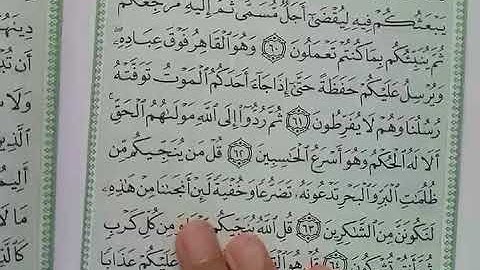 يَبۡعَثُكُمۡ فِيهِ لِيُقۡضَىٰٓ أَجَلٞ مُّسَمّٗىۖ ثُمَّ إِلَيۡهِ مَرۡجِعُكُمۡ
ثُمَّ يُنَبِّئُكُم بِمَا كُنتُمۡ تَعۡمَلُونَ ٦٠ وَهُوَ ٱلۡقَاهِرُ فَوۡقَ عِبَادِهِۦۖ
وَيُرۡسِلُ عَلَيۡكُمۡ حَفَظَةً حَتَّىٰٓ إِذَا جَآءَ أَحَدَكُمُ ٱلۡمَوۡتُ تَوَفَّتۡهُ
رُسُلُنَا وَهُمۡ لَا يُفَرِّطُونَ ٦١ ثُمَّ رُدُّوٓاْ إِلَى ٱللَّهِ مَوۡلَىٰهُمُ ٱلۡحَقِّۚ
أَلَا لَهُ ٱلۡحُكۡمُ وَهُوَ أَسۡرَعُ ٱلۡحَٰسِبِينَ ٦٢ قُلۡ مَن يُنَجِّيكُم مِّن
ظُلُمَٰتِ ٱلۡبَرِّ وَٱلۡبَحۡرِ تَدۡعُونَهُۥ تَضَرُّعٗا وَخُفۡيَةٗ لَّئِنۡ أَنجَىٰنَا مِنۡ هَٰذِهِۦ
لَنَكُونَنَّ مِنَ ٱلشَّٰكِرِينَ ٦٣ قُلِ ٱللَّهُ يُنَجِّيكُم وَمِن كُلِّ كَرۡبٖ
تُشۡرِكُونَ ٦٤ قُلۡ هُوَ عَلَيۡكُمۡ عَذَابٗا